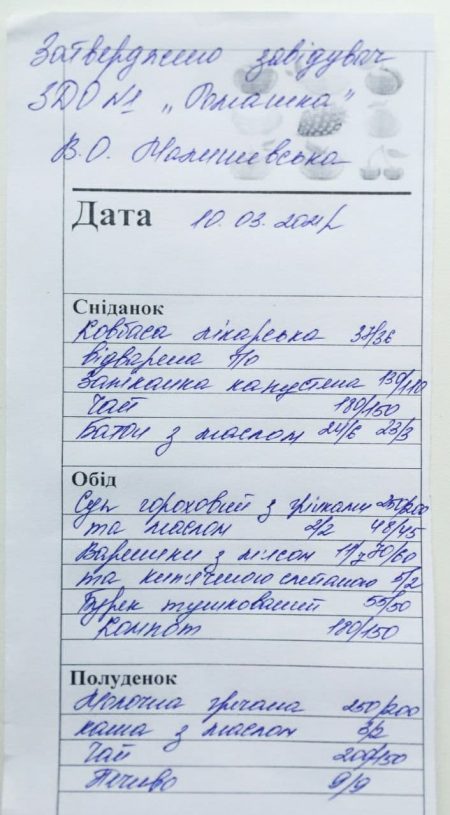 Затверджено завідувач
ЗДО №1 „Ромашка"
В.О. Малишевська
Дата 10.03.2021р
Сніданок
Ковбаса лікарська 37/36
відварена п/о
Запіканка капустяна 130/110
Чай 180/150
Батон з маслом 24/6 23/3
Обід
Суп гороховий з грінками 250/200
та маслом 2/2 48/45
Вареники з м'ясом 70/60
та кип'яченою сметаною 5/2
Буряк тушкований 55/50
Компот 180/150
Полуденок
Молочна гречана 250/200
каша з маслом 3/2
Чай 200/150
Печиво 9/9